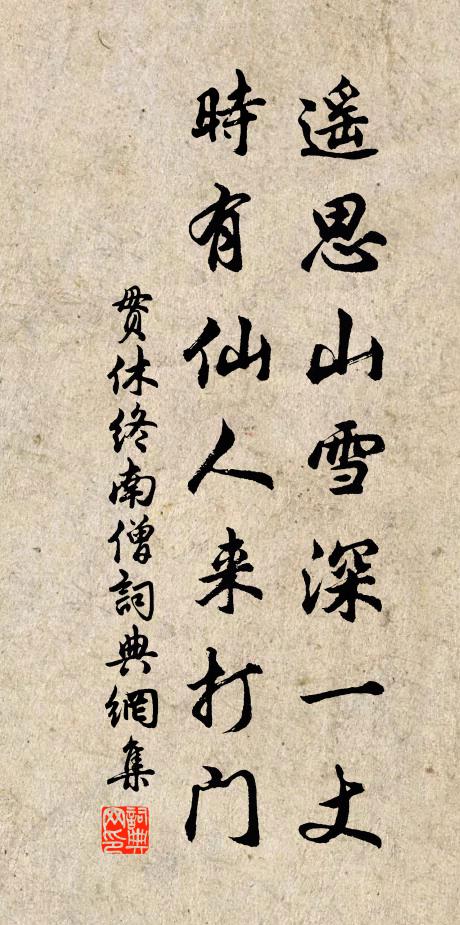 遥思山雪深一丈
時有仙人来打门
贯休终南僧詞典網集
詞典网印